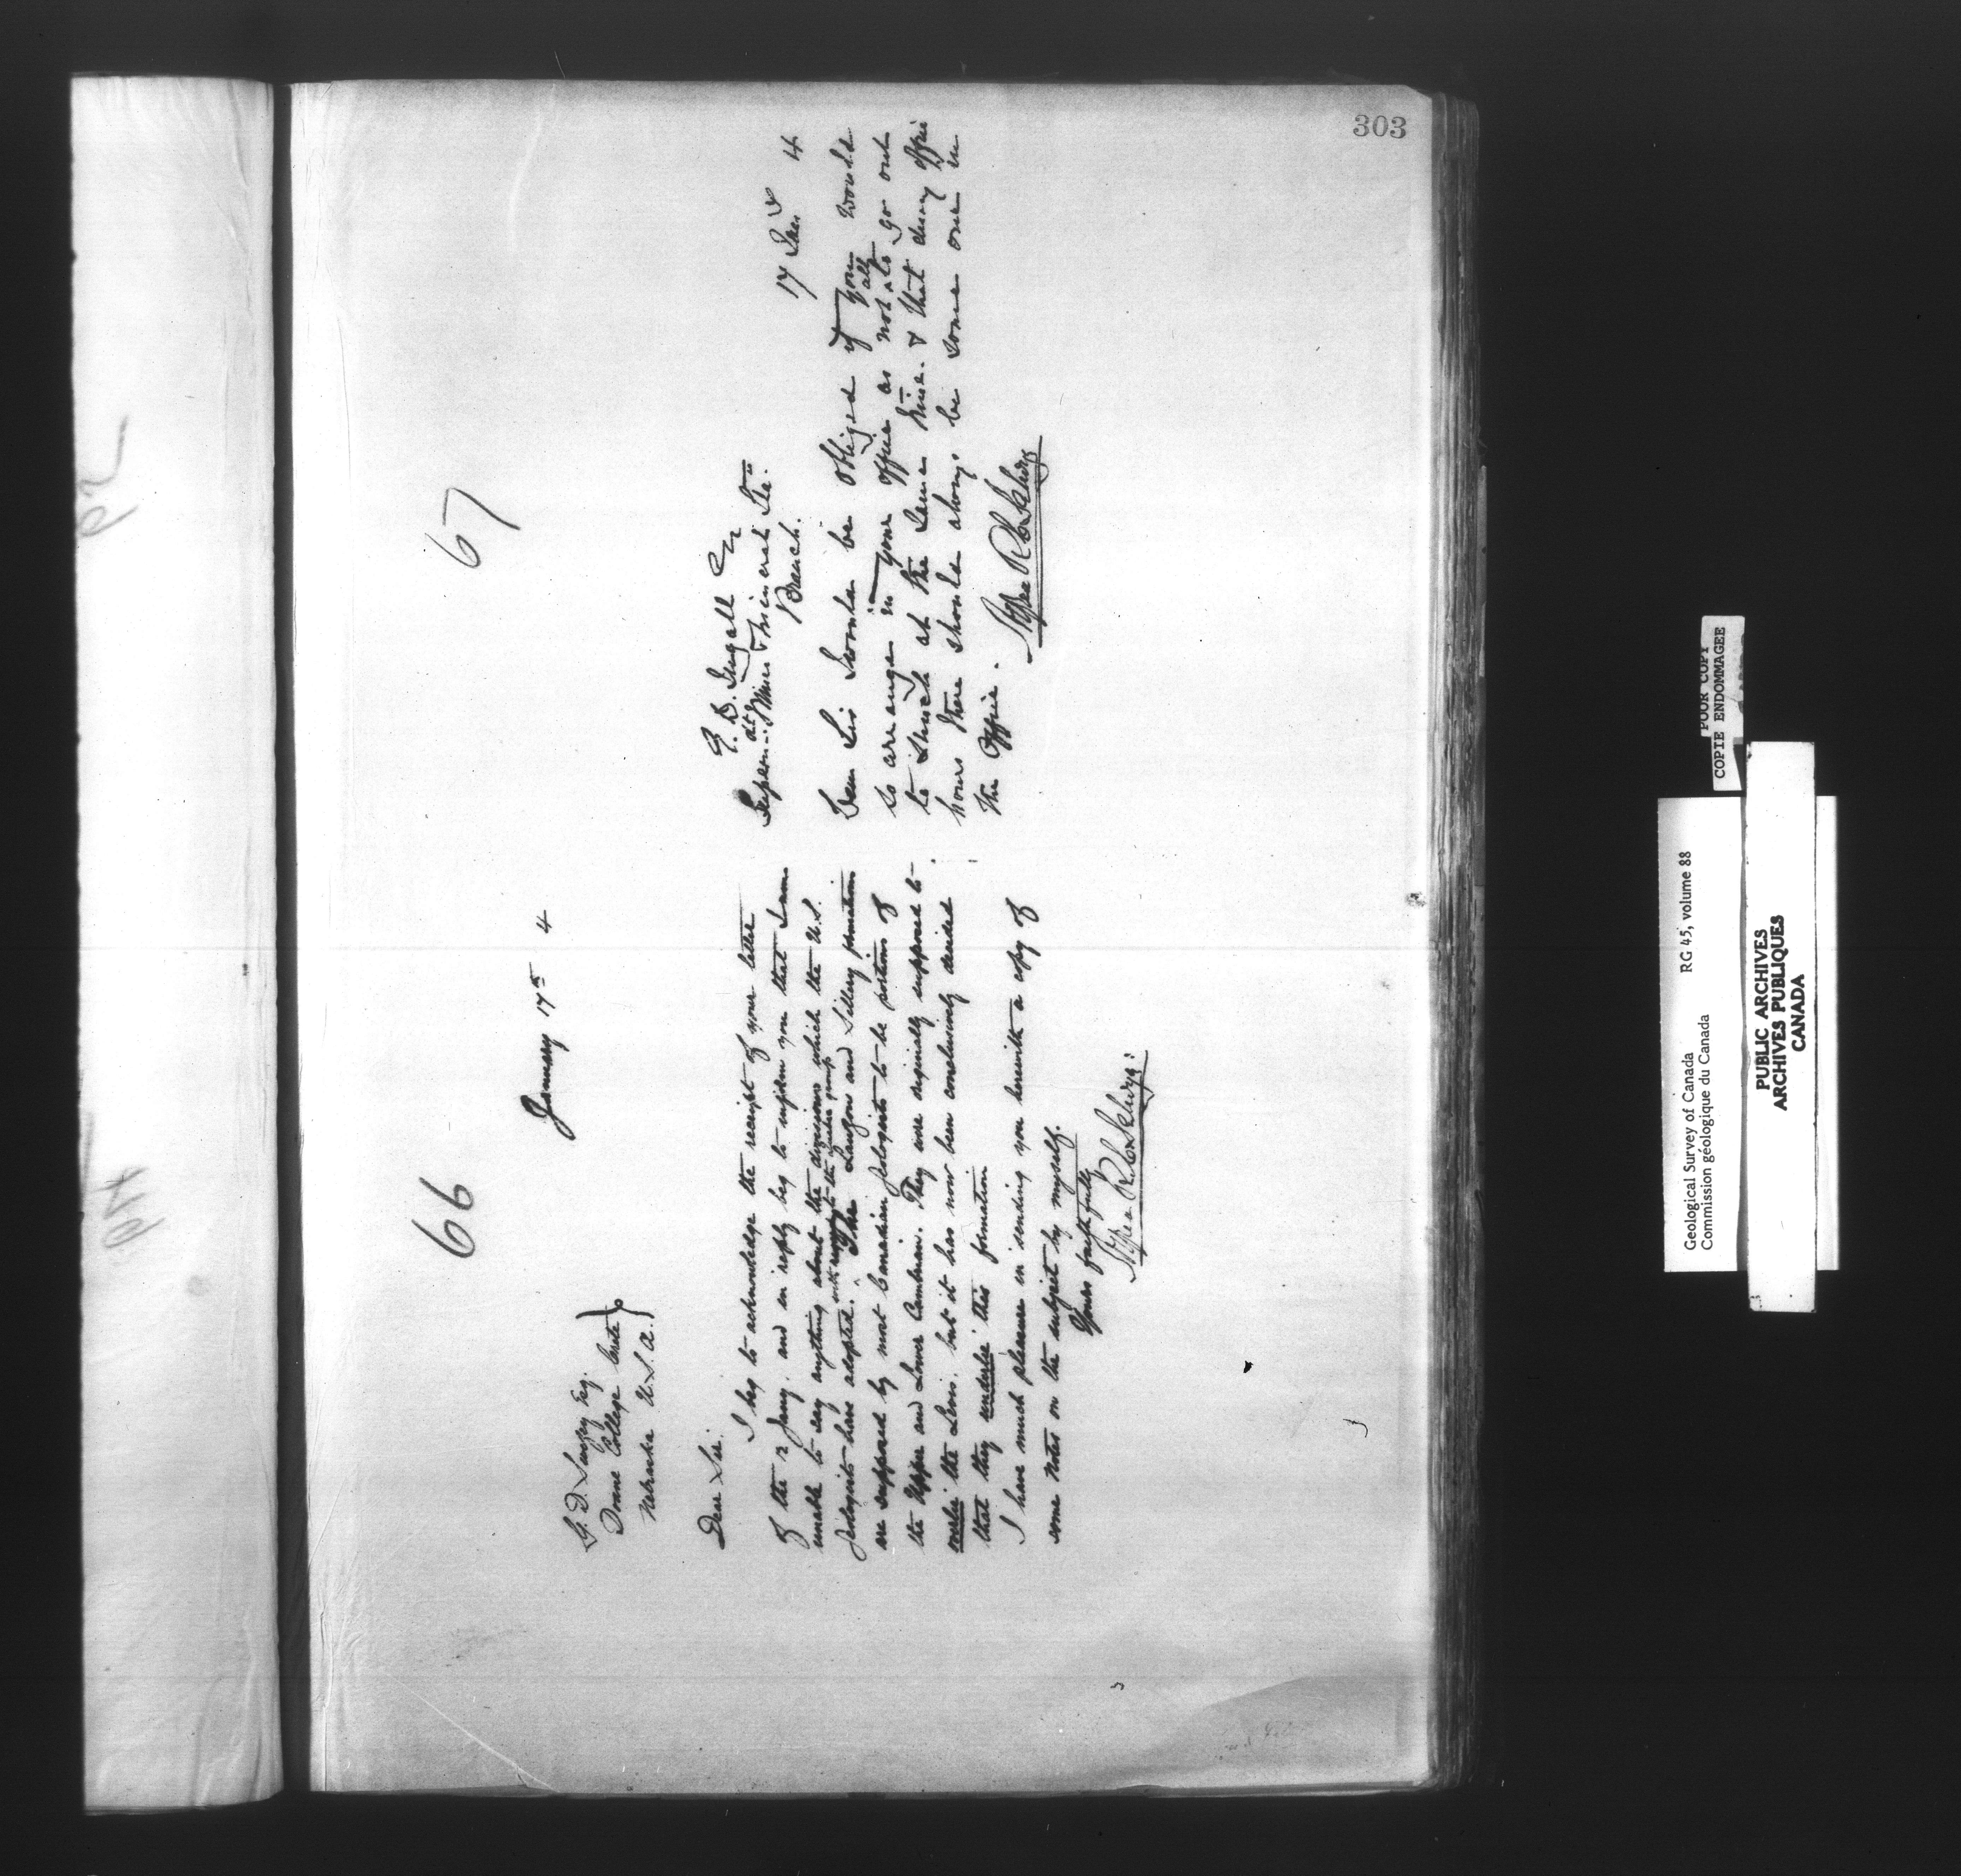 303
66
January 17th 4
G. D. Swezey Esq.
Doane College Crete
Nebraska U.S.A.
Dear Sir.
I beg to acknowledge the receipt of your letter
of the 2 Jany. and in reply beg to inform you that I am
unable to say anything about the divisions which the U.S.
Geologists have adopted. with regard to the Quebec group The Lauzon and Sillery formation
are supposed by most Canadian Geologists to be portions of
the Upper and Lower Cambrian. They were originally supposed to
overlie the Levis. but it has now been conclusively decided
that they underlie this formation
I have much pleasure in sending you herewith a copy of
some notes on the subject by myself.
Yours faithfully
67
E. D. Ingall
Mines & Mineral Sta.
Branch.
17 Jan 4
Dear Sir I would be obliged if you would
so arrange in your office as not all to go out
to lunch at the same time. & that during office
hours there should always be some one in
the office.
POOR COPY
COPIE ENDOMMAGEE
Geological Survey of Canada RG 45, volume 88
Commission géologique du Canada
PUBLIC ARCHIVES
ARCHIVES PUBLIQUES
CANADA